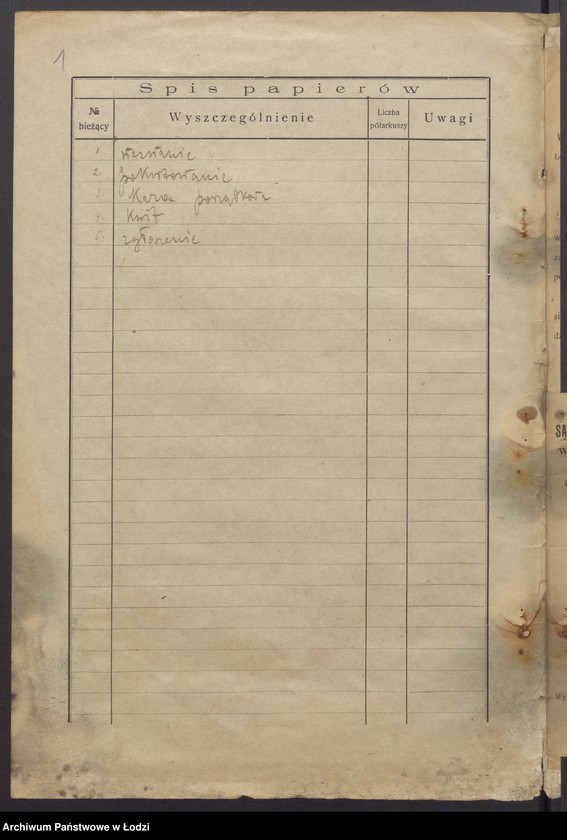 1
Spis papierów
№ bieżący Wyszczególnienie Liczba półarkuszy Uwagi
1. wezwanie
2. pokwitowanie
3. Kara porządkowa
4. Kwit
5. zgłoszenie
SĄ
Archiwum Państwowe w Łodzi